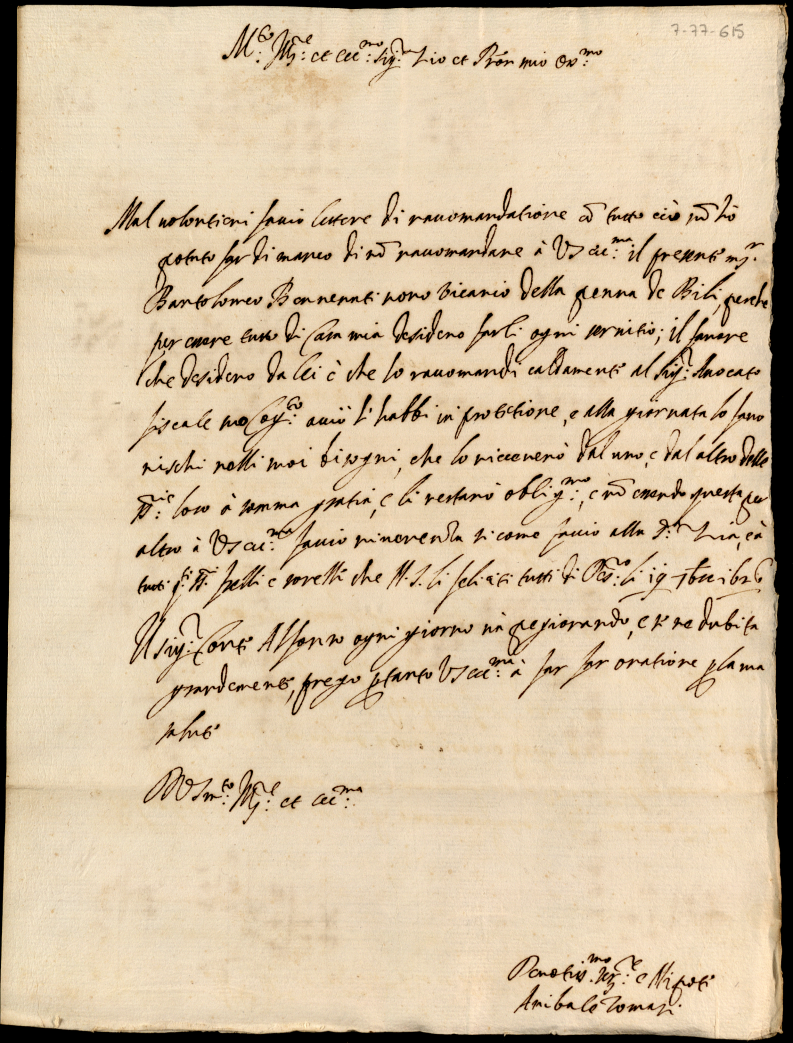 7-77-615
M.to Ill.re et Ecc.mo Sig.r Zio et Pron mio oss.mo
Mal volontieri faccio lettere di raccomandatione cō tutto ciò nō hò
potuto far di manco di nō raccomandare à VS ecc.ma il presente
Bartolomeo Bennenati novo Vicario della Penna de Billi, perche
per essere tutto di Casa mia desidero farli ogni servitio; il favore
che desidero da lei è che lo raccomandi caldamente al Sig.r Avocato
fiscale suo acciò l'habbi in protetione, e alla giornata lo favo
rischi nelli suoi bisogni, che lo riceverò dal uno, e dal altro delle
loro à somma gratia, e li restarò oblig.mo, e nō essendo questa per
altro à VS ecc.ma faccio riverenza si come faccio alla S.ra Zia, e à
tutti fratelli e sorelle che N.S. li feliciti tutti di
Il Sig.r Conte Alfonso ogni giorno và pegiorando, e si ne dubita
grandemente, prego p tanto VS ecc.ma à far far oratione p la sua
salute
Di VS m.to Ill.re et ecc.ma
Devotiss.mo e Nipote
Anibale Tomasi